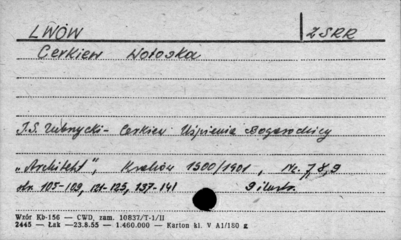 LWÓW ZSRR
Cerkiew Wołoska
J.S. Zubrzycki - Cerkiew Uspienia Bogarodzicy
„Architekt", Kraków 1900/1901, Nr. 7,8,9
str. 105-109, 121-125, 137-141 9 ilustr.
Wzór Kb-156 — CWD, zam. 10837/T-1/II
2445 — Łsk —23.8.55 — 1.460.000 — Karton kl. V A1/180 g